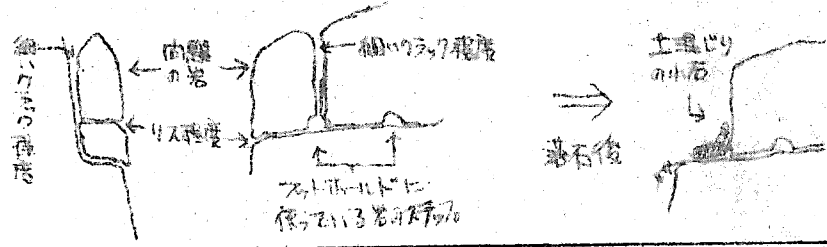 細いクラック程度
問題の岩
細いクラック程度
リス程度
フットホールドに
使っている岩のステップ
落石後
土混じり
の小石